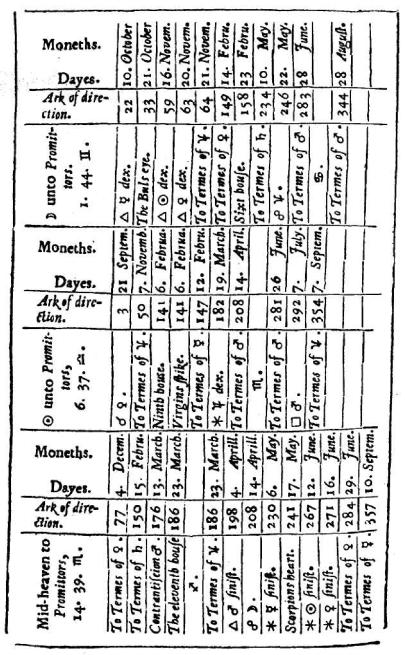 Mid-heaven to Promittors, 14. 39. ♏.
Ark of dire-
ction.
Dayes. Moneths.
To Termes of ♀. 77 4. Decem.
To Termes of ♄. 150 15. Febru.
Contrantiscion ♂. 176 13. March.
The eleventh house 186 23. March.
♂.
To Termes of ♃. 186 23. March.
△ ♂ ſiniſt. 198 4. Aprill.
☍ ☽. 208 14. Aprill
✶ ☿ ſiniſt. 230 6. May.
Scorpions heart. 241 17. May.
✶ ☉ ſiniſt. 267 12. June.
✶ ♀ ſiniſt. 271 16. June.
To Termes of ♀. 284 29. June.
To Termes of ☿. 357 10. Septem.
☉ unto Promit-
tors,
6. 37. ♎.
Ark of dire-
ction.
Dayes. Moneths.
☌ ♀. 3 21 Septem.
To Termes of ♃. 50 7. Novemb.
Ninth houſe. 141 6. Februa.
Virgins ſpike. 141 6. Februa.
To Termes of ☿. 147 12. Febru.
✶ ♃ dex. 182 19. March.
To Termes of ♂. 208 14. April.
♏.
To Termes of ♂. 281 26 June.
□ ♂. 292 7. July.
To Termes of ♃. 354 7. Septem.
☽ unto Promit-
tors.
1. 44. ♊.
Ark of dire-
ction.
Dayes. Moneths.
△ ☿ dex. 22 10. October
The Buls eye. 33 21. October
△ ☉ dex. 59 16. Novem.
△ ♀ dex. 63 20. Novem.
To Termes of ♃. 64 21. Novem.
To Termes of ♀. 149 14. Febru.
Sixt houſe. 158 23 Febru.
To Termes of ♄. 234 10. May.
☍ ♃. 246 22. May.
To Termes of ♂. 283 28 June.
♋.
To Termes of ♂. 344 28 Auguſt.